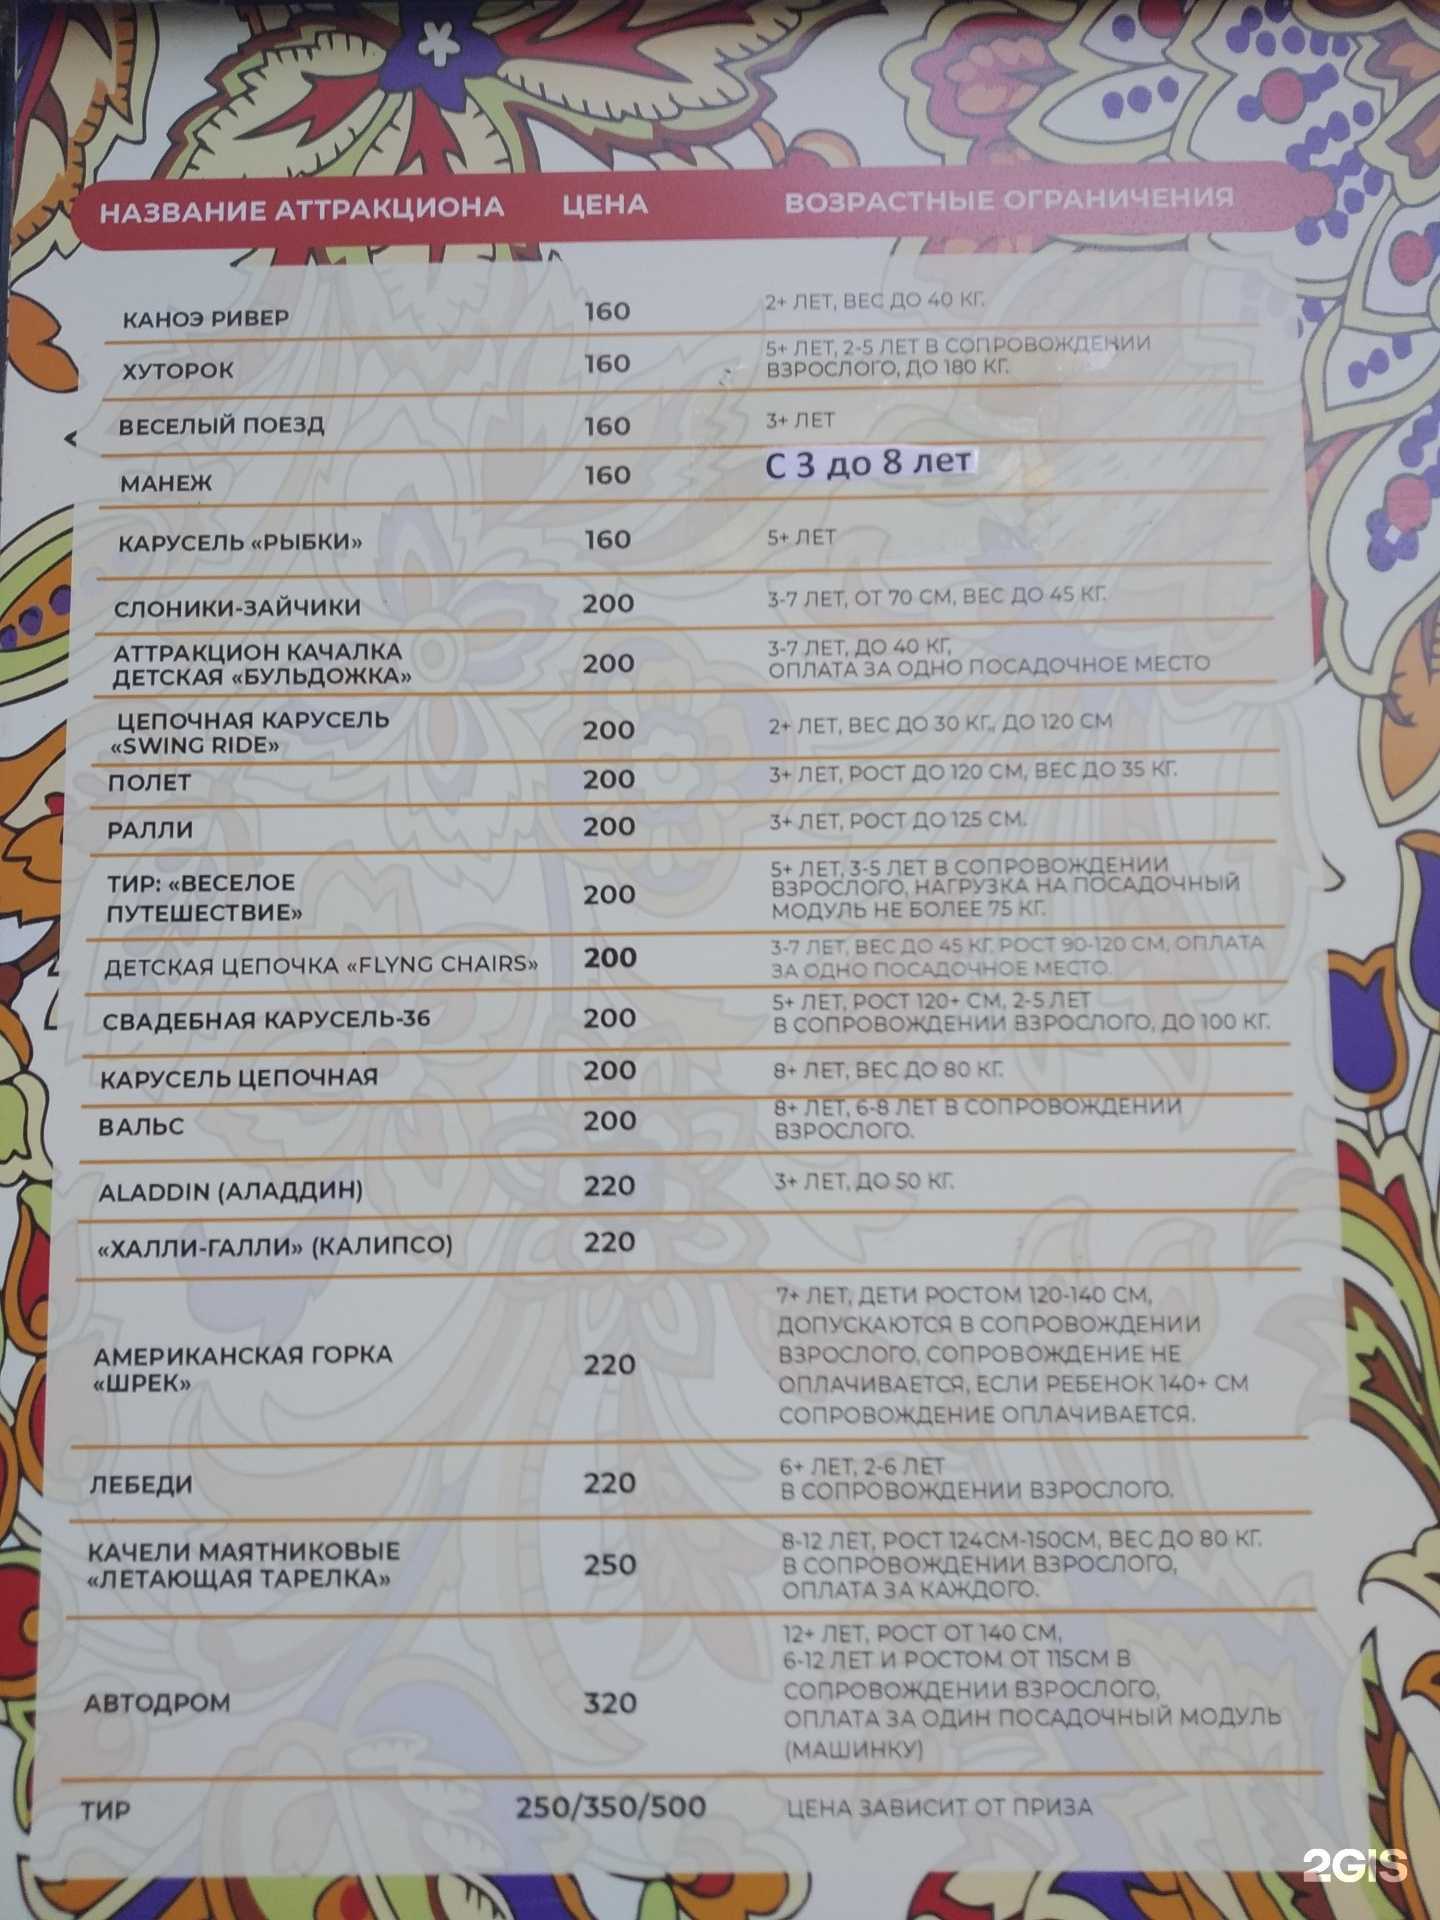 НАЗВАНИЕ АТТРАКЦИОНА ЦЕНА ВОЗРАСТНЫЕ ОГРАНИЧЕНИЯ
КАНОЭ РИВЕР 160 2+ ЛЕТ, ВЕС ДО 40 КГ.
ХУТОРОК 160 5+ ЛЕТ, 2-5 ЛЕТ В СОПРОВОЖДЕНИИ
ВЗРОСЛОГО, ДО 180 КГ.
ВЕСЕЛЫЙ ПОЕЗД 160 3+ ЛЕТ
МАНЕЖ 160 С 3 до 8 лет
КАРУСЕЛЬ «РЫБКИ» 160 5+ ЛЕТ
СЛОНИКИ-ЗАЙЧИКИ 200 3-7 ЛЕТ, ОТ 70 СМ, ВЕС ДО 45 КГ.
АТТРАКЦИОН КАЧАЛКА
ДЕТСКАЯ «БУЛЬДОЖКА» 200 3-7 ЛЕТ, ДО 40 КГ,
ОПЛАТА ЗА ОДНО ПОСАДОЧНОЕ МЕСТО
ЦЕПОЧНАЯ КАРУСЕЛЬ
«SWING RIDE» 200 2+ ЛЕТ, ВЕС ДО 30 КГ., ДО 120 СМ
ПОЛЕТ 200 3+ ЛЕТ, РОСТ ДО 120 СМ, ВЕС ДО 35 КГ.
РАЛЛИ 200 3+ ЛЕТ, РОСТ ДО 125 СМ.
ТИР: «ВЕСЕЛОЕ
ПУТЕШЕСТВИЕ» 200 5+ ЛЕТ, 3-5 ЛЕТ В СОПРОВОЖДЕНИИ
ВЗРОСЛОГО, НАГРУЗКА НА ПОСАДОЧНЫЙ
МОДУЛЬ НЕ БОЛЕЕ 75 КГ.
ДЕТСКАЯ ЦЕПОЧКА «FLYNG CHAIRS» 200 3-7 ЛЕТ, ВЕС ДО 45 КГ. РОСТ 90-120 СМ, ОПЛАТА
ЗА ОДНО ПОСАДОЧНОЕ МЕСТО.
СВАДЕБНАЯ КАРУСЕЛЬ-36 200 5+ ЛЕТ, РОСТ 120+ СМ, 2-5 ЛЕТ
В СОПРОВОЖДЕНИИ ВЗРОСЛОГО, ДО 100 КГ.
КАРУСЕЛЬ ЦЕПОЧНАЯ 200 8+ ЛЕТ, ВЕС ДО 80 КГ.
ВАЛЬС 200 8+ ЛЕТ, 6-8 ЛЕТ В СОПРОВОЖДЕНИИ
ВЗРОСЛОГО.
ALADDIN (АЛАДДИН) 220 3+ ЛЕТ, ДО 50 КГ.
«ХАЛЛИ-ГАЛЛИ» (КАЛИПСО) 220
АМЕРИКАНСКАЯ ГОРКА
«ШРЕК» 220 7+ ЛЕТ, ДЕТИ РОСТОМ 120-140 СМ,
ДОПУСКАЮТСЯ В СОПРОВОЖДЕНИИ
ВЗРОСЛОГО, СОПРОВОЖДЕНИЕ НЕ
ОПЛАЧИВАЕТСЯ, ЕСЛИ РЕБЕНОК 140+ СМ
СОПРОВОЖДЕНИЕ ОПЛАЧИВАЕТСЯ.
ЛЕБЕДИ 220 6+ ЛЕТ, 2-6 ЛЕТ
В СОПРОВОЖДЕНИИ ВЗРОСЛОГО.
КАЧЕЛИ МАЯТНИКОВЫЕ
«ЛЕТАЮЩАЯ ТАРЕЛКА» 250 8-12 ЛЕТ, РОСТ 124СМ-150СМ, ВЕС ДО 80 КГ.
В СОПРОВОЖДЕНИИ ВЗРОСЛОГО,
ОПЛАТА ЗА КАЖДОГО.
АВТОДРОМ 320 12+ ЛЕТ, РОСТ ОТ 140 СМ,
6-12 ЛЕТ И РОСТОМ ОТ 115СМ В
СОПРОВОЖДЕНИИ ВЗРОСЛОГО,
ОПЛАТА ЗА ОДИН ПОСАДОЧНЫЙ МОДУЛЬ
(МАШИНКУ)
ТИР 250/350/500 ЦЕНА ЗАВИСИТ ОТ ПРИЗА
2GIS